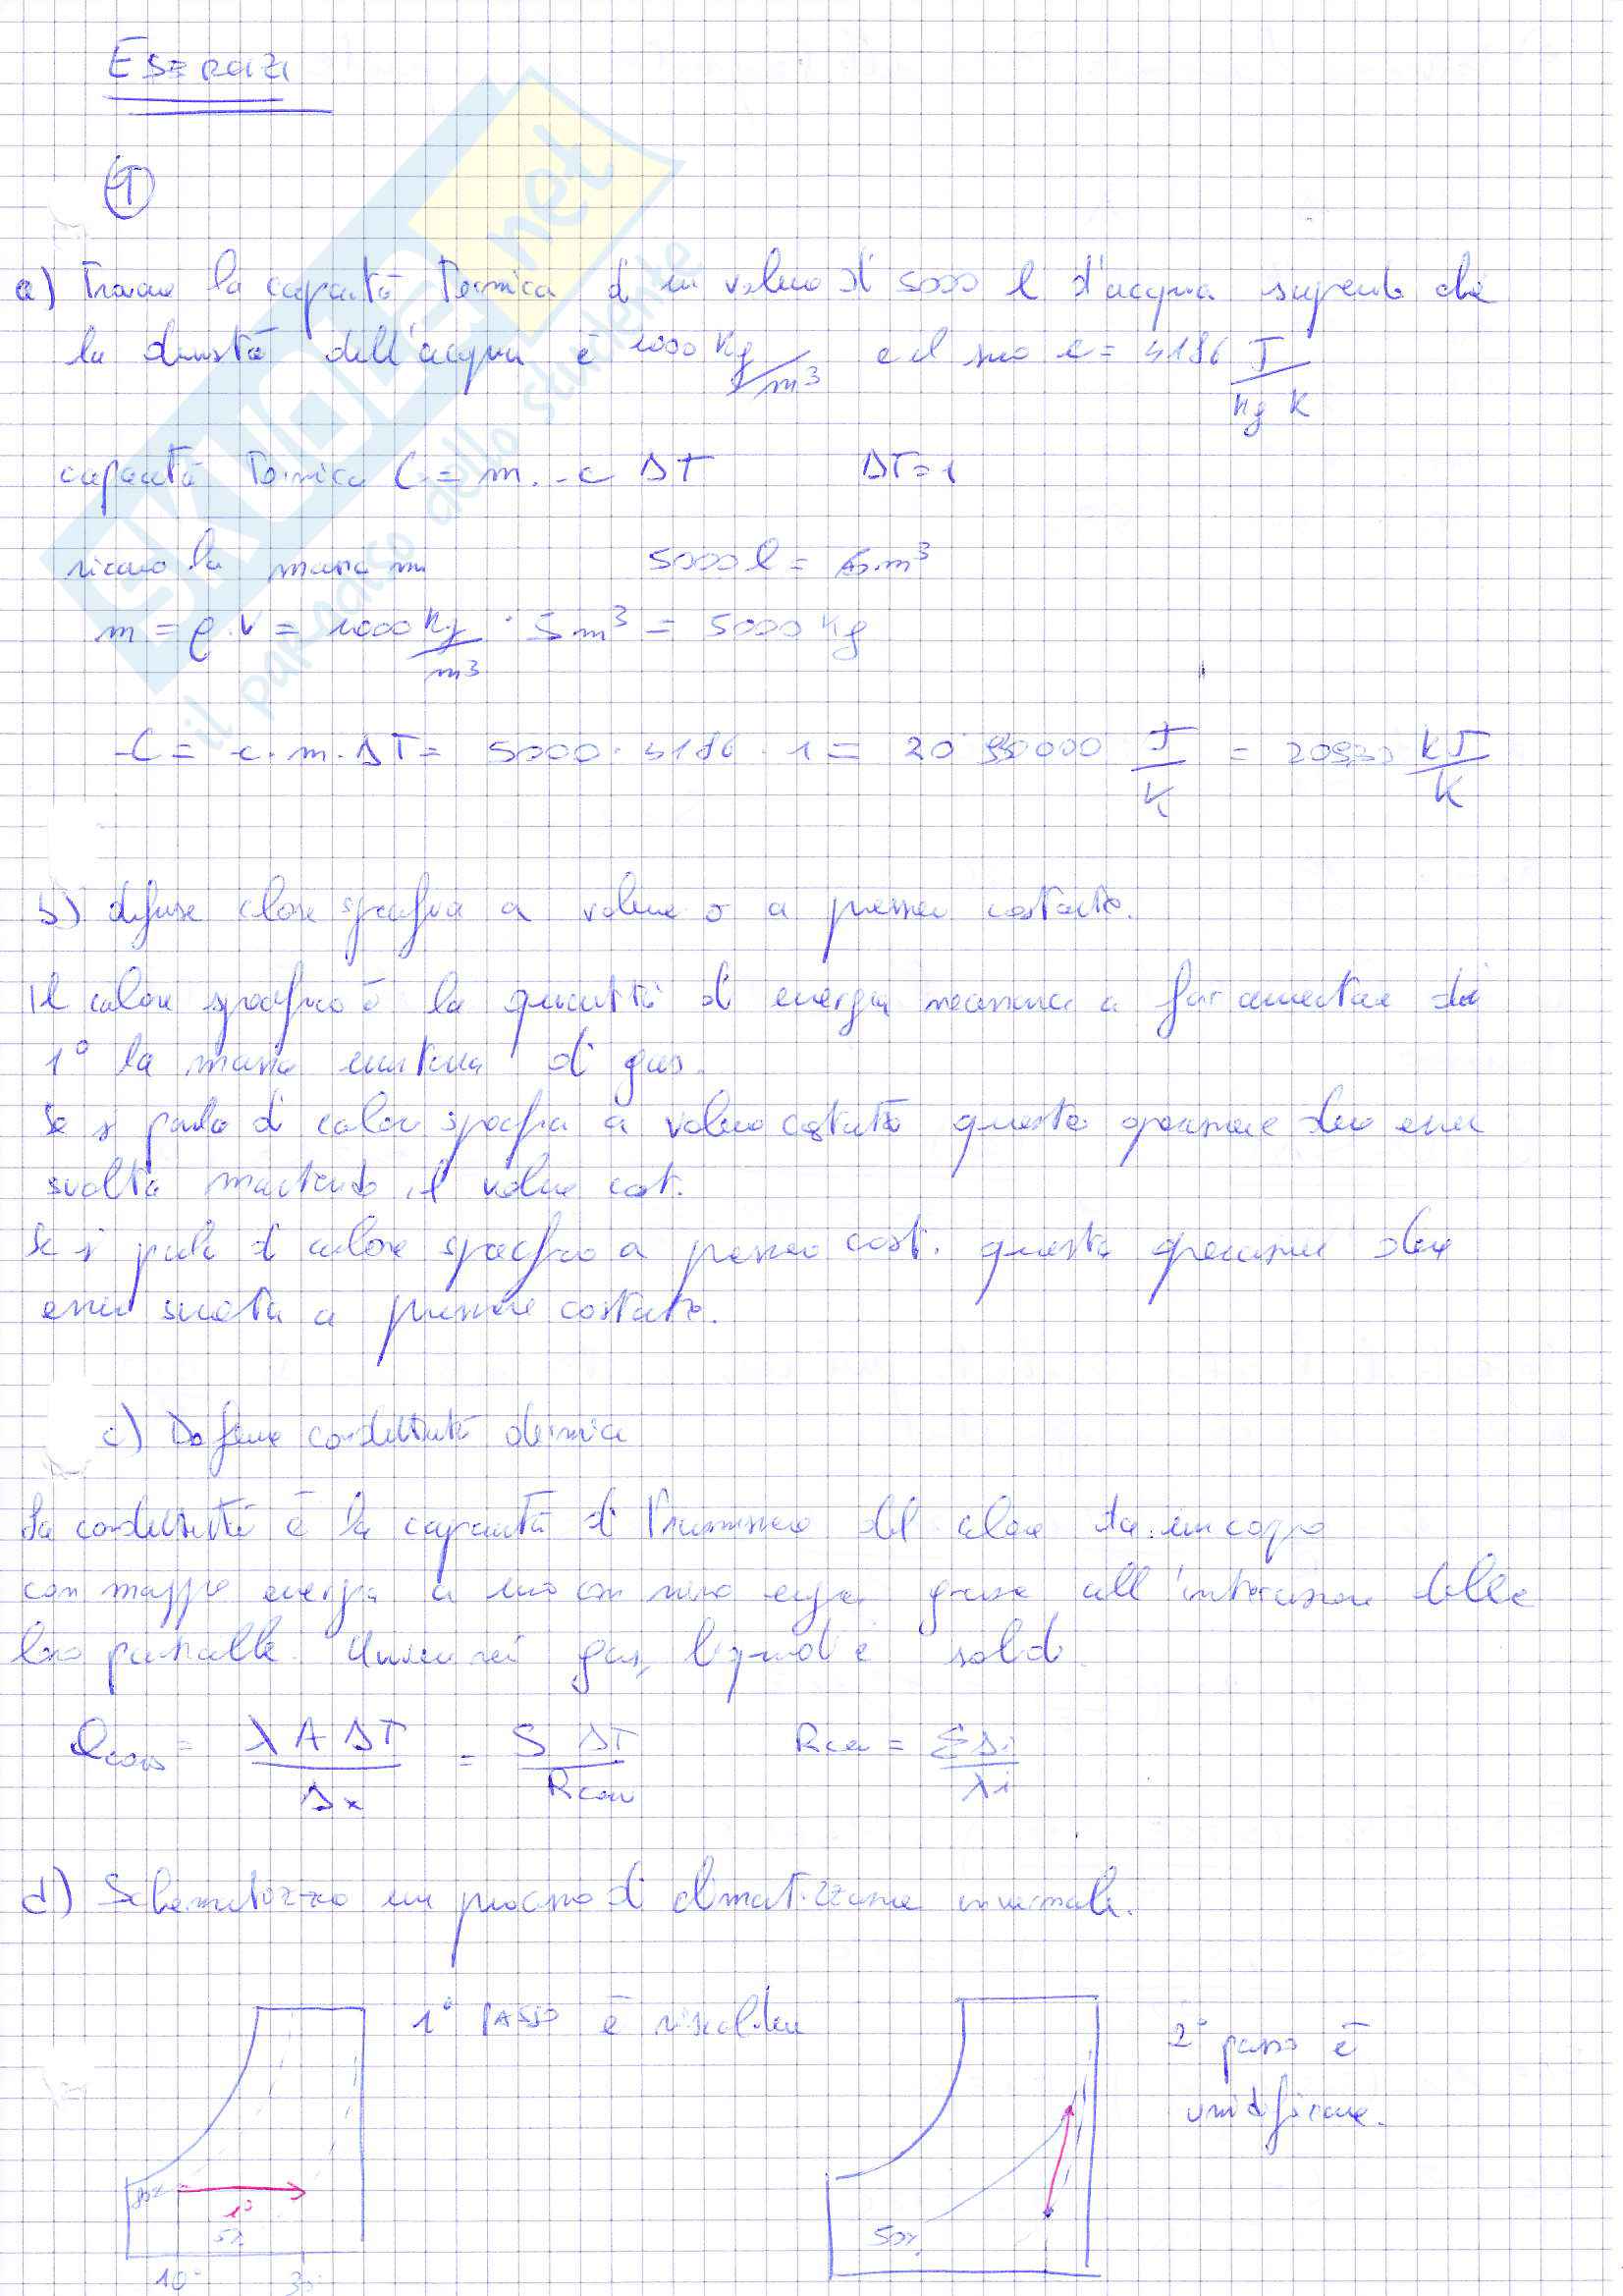 Esercizi
1
a) Trovare la capacità termica di un volume di 5000 l d'acqua sapendo che
la densità dell'acqua è 1000 Kg/m³ e il suo c = 4186 J/Kg K
capacità termica C = m · c ΔT ΔT=1
ricavo la massa m 5000 l = 5 m³
m = ρ · V = 1000 Kg/m³ · 5 m³ = 5000 Kg
C = c · m · ΔT = 5000 · 4186 · 1 = 20930000 J/K = 20930 KJ/K
b) definire calore specifico a volume o a pressione costante.
Il calore specifico è la quantità di energia necessaria a far aumentare di
1° la massa unitaria di gas.
Se si parla di calore specifico a volume costante questa operazione deve esser
svolta mantenendo il volume cost.
Se si parla di calore specifico a pressione cost. questa operazione deve
esser svolta a pressione costante.
c) Definire conduttività termica
La conduttività è la capacità di trasmissione del calore da un corpo
con maggiore energia a uno con meno energia grazie all'interazione delle
loro particelle. Avviene nei gas, liquidi e solidi
Qcond = λ A ΔT / Δx = S ΔT / Rcon Rcon = Σ Δi / λi
d) Schematizzare un processo di climatizzazione invernale.
1° PASSO è riscaldare
2° passo è
umidificare.
80%
1°
5%
10° 30°
50%